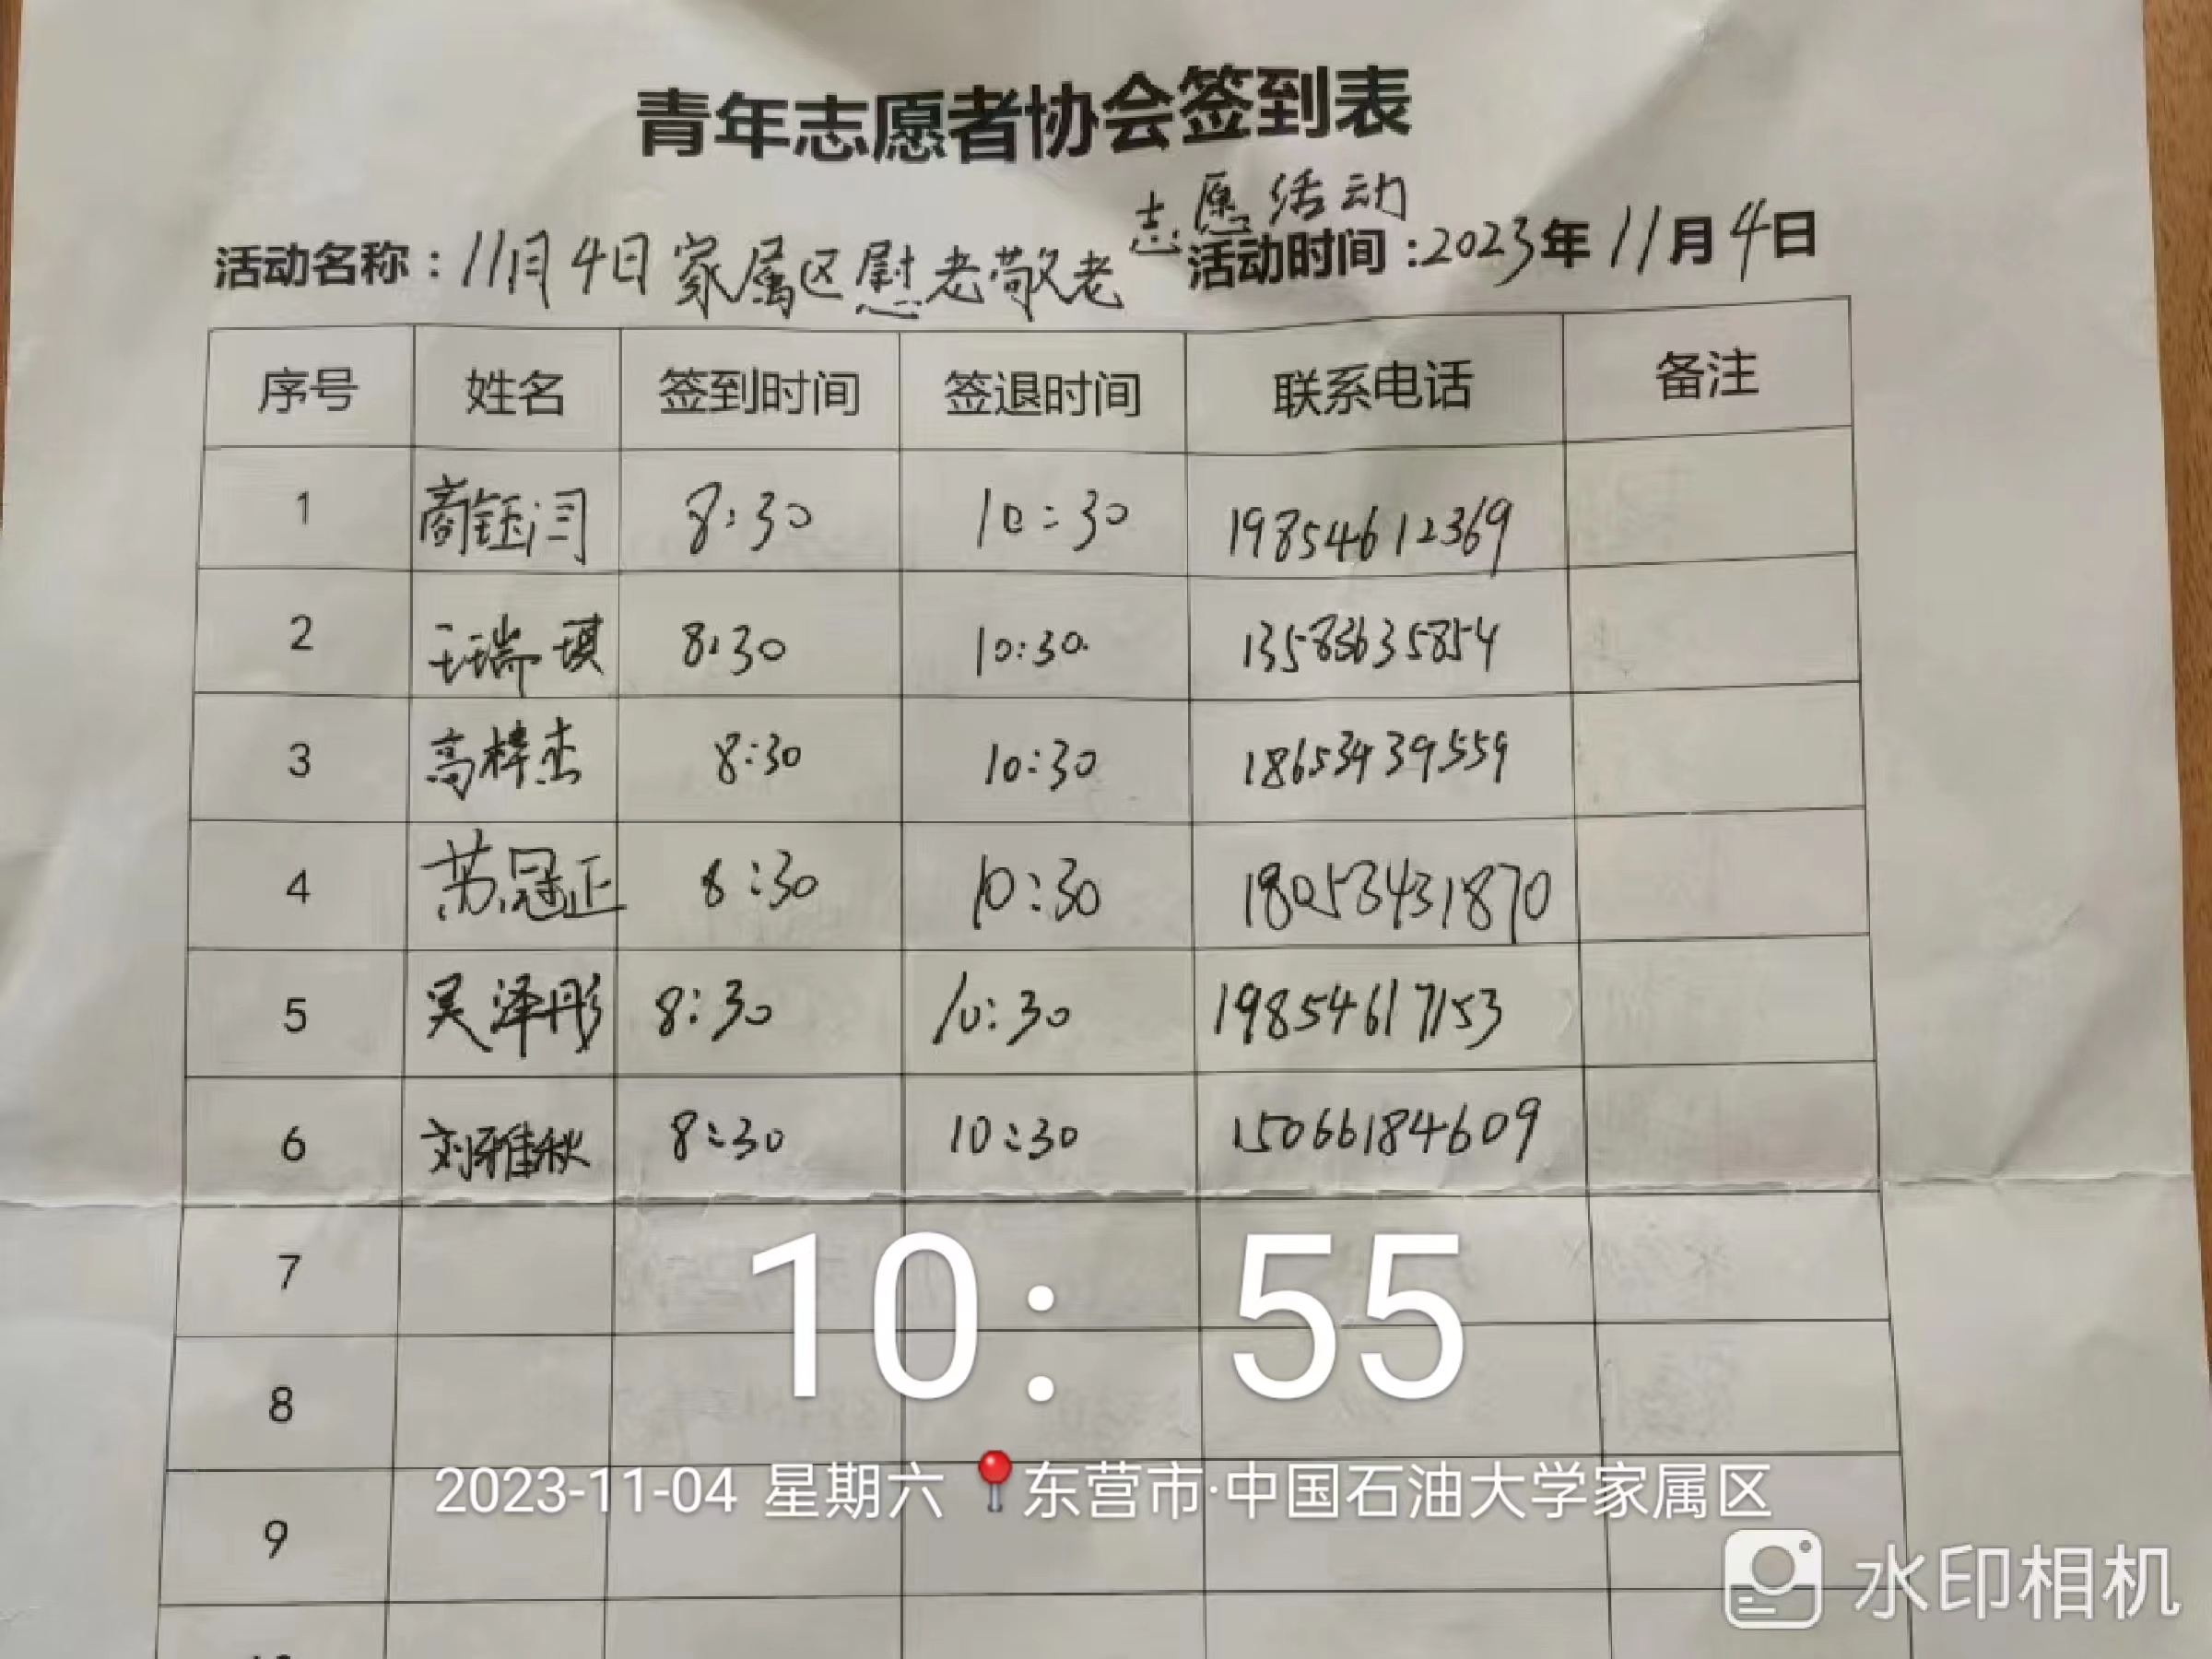 青年志愿者协会签到表
志愿活动
活动名称：11月4日家属区慰老敬老 活动时间：2023年11月4日
序号 姓名 签到时间 签退时间 联系电话 备注
1 商钰闫 8:30 10:30 19854612369
2 王瑞琪 8:30 10:30 13583635854
3 高梓杰 8:30 10:30 18653439559
4 苏冠正 8:30 10:30 18053431870
5 吴泽彤 8:30 10:30 19854617153
6 刘雅秋 8:30 10:30 15066184609
7
10:55
8
2023-11-04 星期六 东营市·中国石油大学家属区
9
水印相机